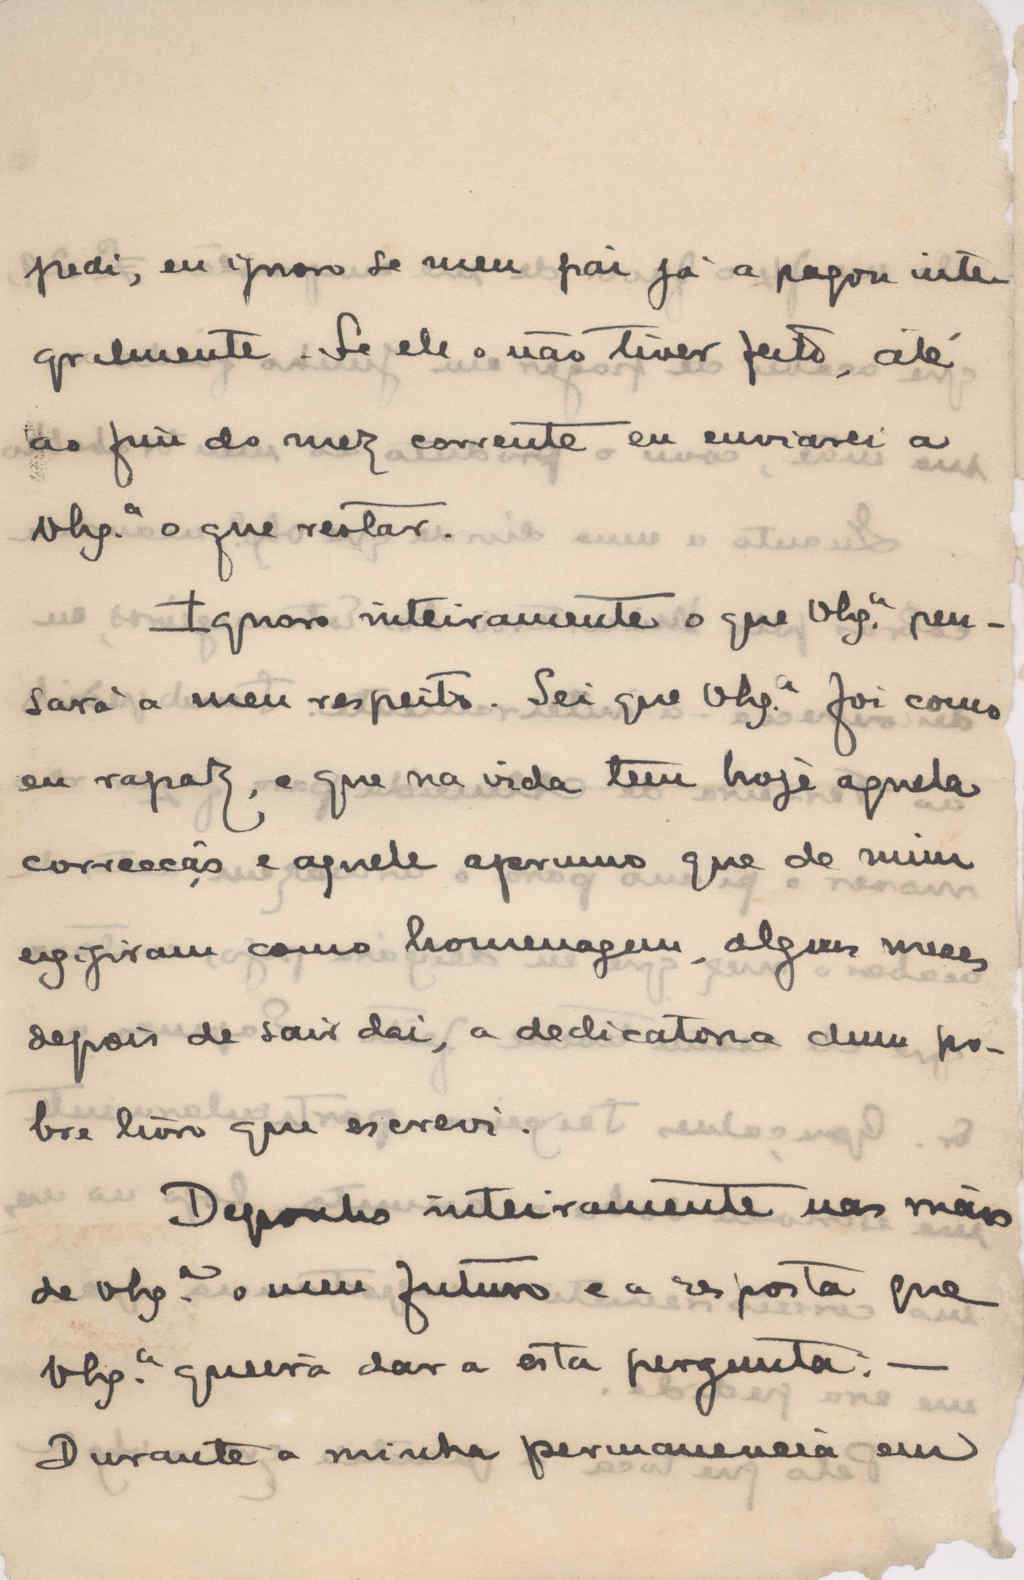 pedi, eu ignoro se meu pai já a pagou inte-
gralmente. Se ele o não tiver feito, até
ao fim do mez corrente eu enviarei a
Vhg.ª o que restar.
Ignoro inteiramente o que Vhg.ª pen-
sará a meu respeito. Sei que Vhg.ª foi como
eu rapaz, e que na vida tem hoje aquela
correcção e aquele aprumo que de mim
exigiram como homenagem, alguns mezes
depois de sair daí, a dedicatoria dum po-
bre livro que escrevi.
Deponho inteiramente nas mãos
de Vhg.ª o meu futuro e a resposta que
Vhg.ª queira dar a esta pergunta: —
Durante a minha permanencia em